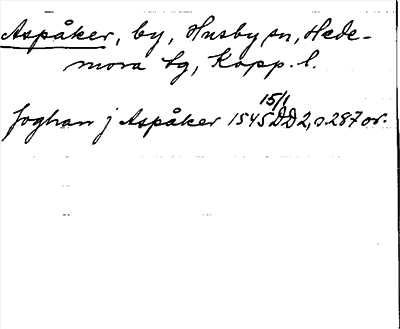 Aspåker, by, Husby sn, Hede-
mora tg, Kopp. l.
Joghan j Aspåker 1545 15/1 DD 2, s. 287 or.